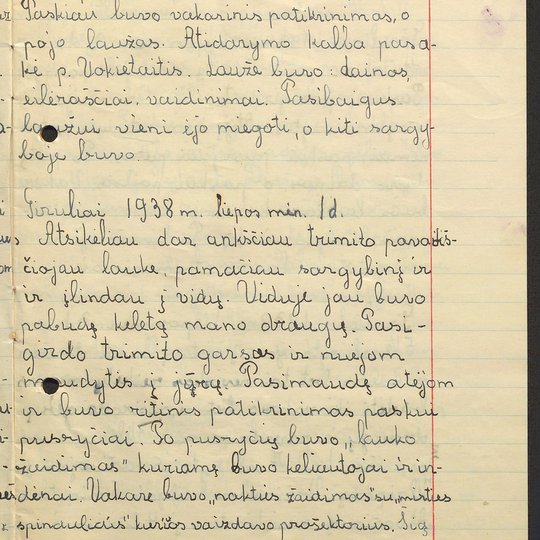 Paskiau buvo vakarinis patikrinimas, o
pojo laužas. Atidarymo kalbą pasa-
kė p. Vokietaitis. Lauže buvo: dainos,
eilėraščiai, vaidinimai. Pasibaigus
laužui vieni ėjo miegoti, o kiti sargy-
boje buvo.
Giruliai 1938 m. liepos mėn. 1 d.
Atsikėliau dar anksčiau trimito pavaikš-
čiojau lauke, pamačiau sargybinį ir
ir įlindau į vidų. Viduje jau buvo
pabudę keletą mano draugų. Pasi-
girdo trimito garsas ir nuėjom
maudytis į jūrę. Pasimaudę atėjom
ir buvo ritinis patikrinimas paskui
pusryčiai. Po pusryčių buvo „lauko
žaidimas" kuriame buvo keliautojai ir in-
dėnai. Vakare buvo „nakties žaidimas" su „mirties
spinduliais" kuriuos vaizdavo prožektorius. Šią